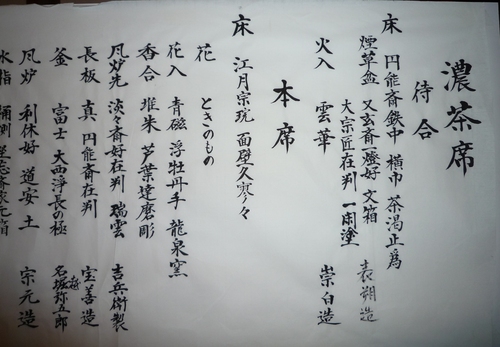 濃茶席
待合
床 円能斎 鉄中 横巾 茶渇正為
煙草盆 又玄斎一燈好 文箱 表朔造
大宗匠在判 一閑塗
火入 雲華 崇白造
本席
床 江月宗玩 面壁久寒々
花 ときのもの
花入 青磁 浮牡丹手 龍泉窯
香合 堆朱 芦葉達磨彫
風炉先 淡々斎好在判 瑞雲 吉兵衛製
長板 真 円能斎在判 宝善造
釜 富士 大西淨長の極 名越弥五郎
風炉 利休好 道安 土 宗元造
水指